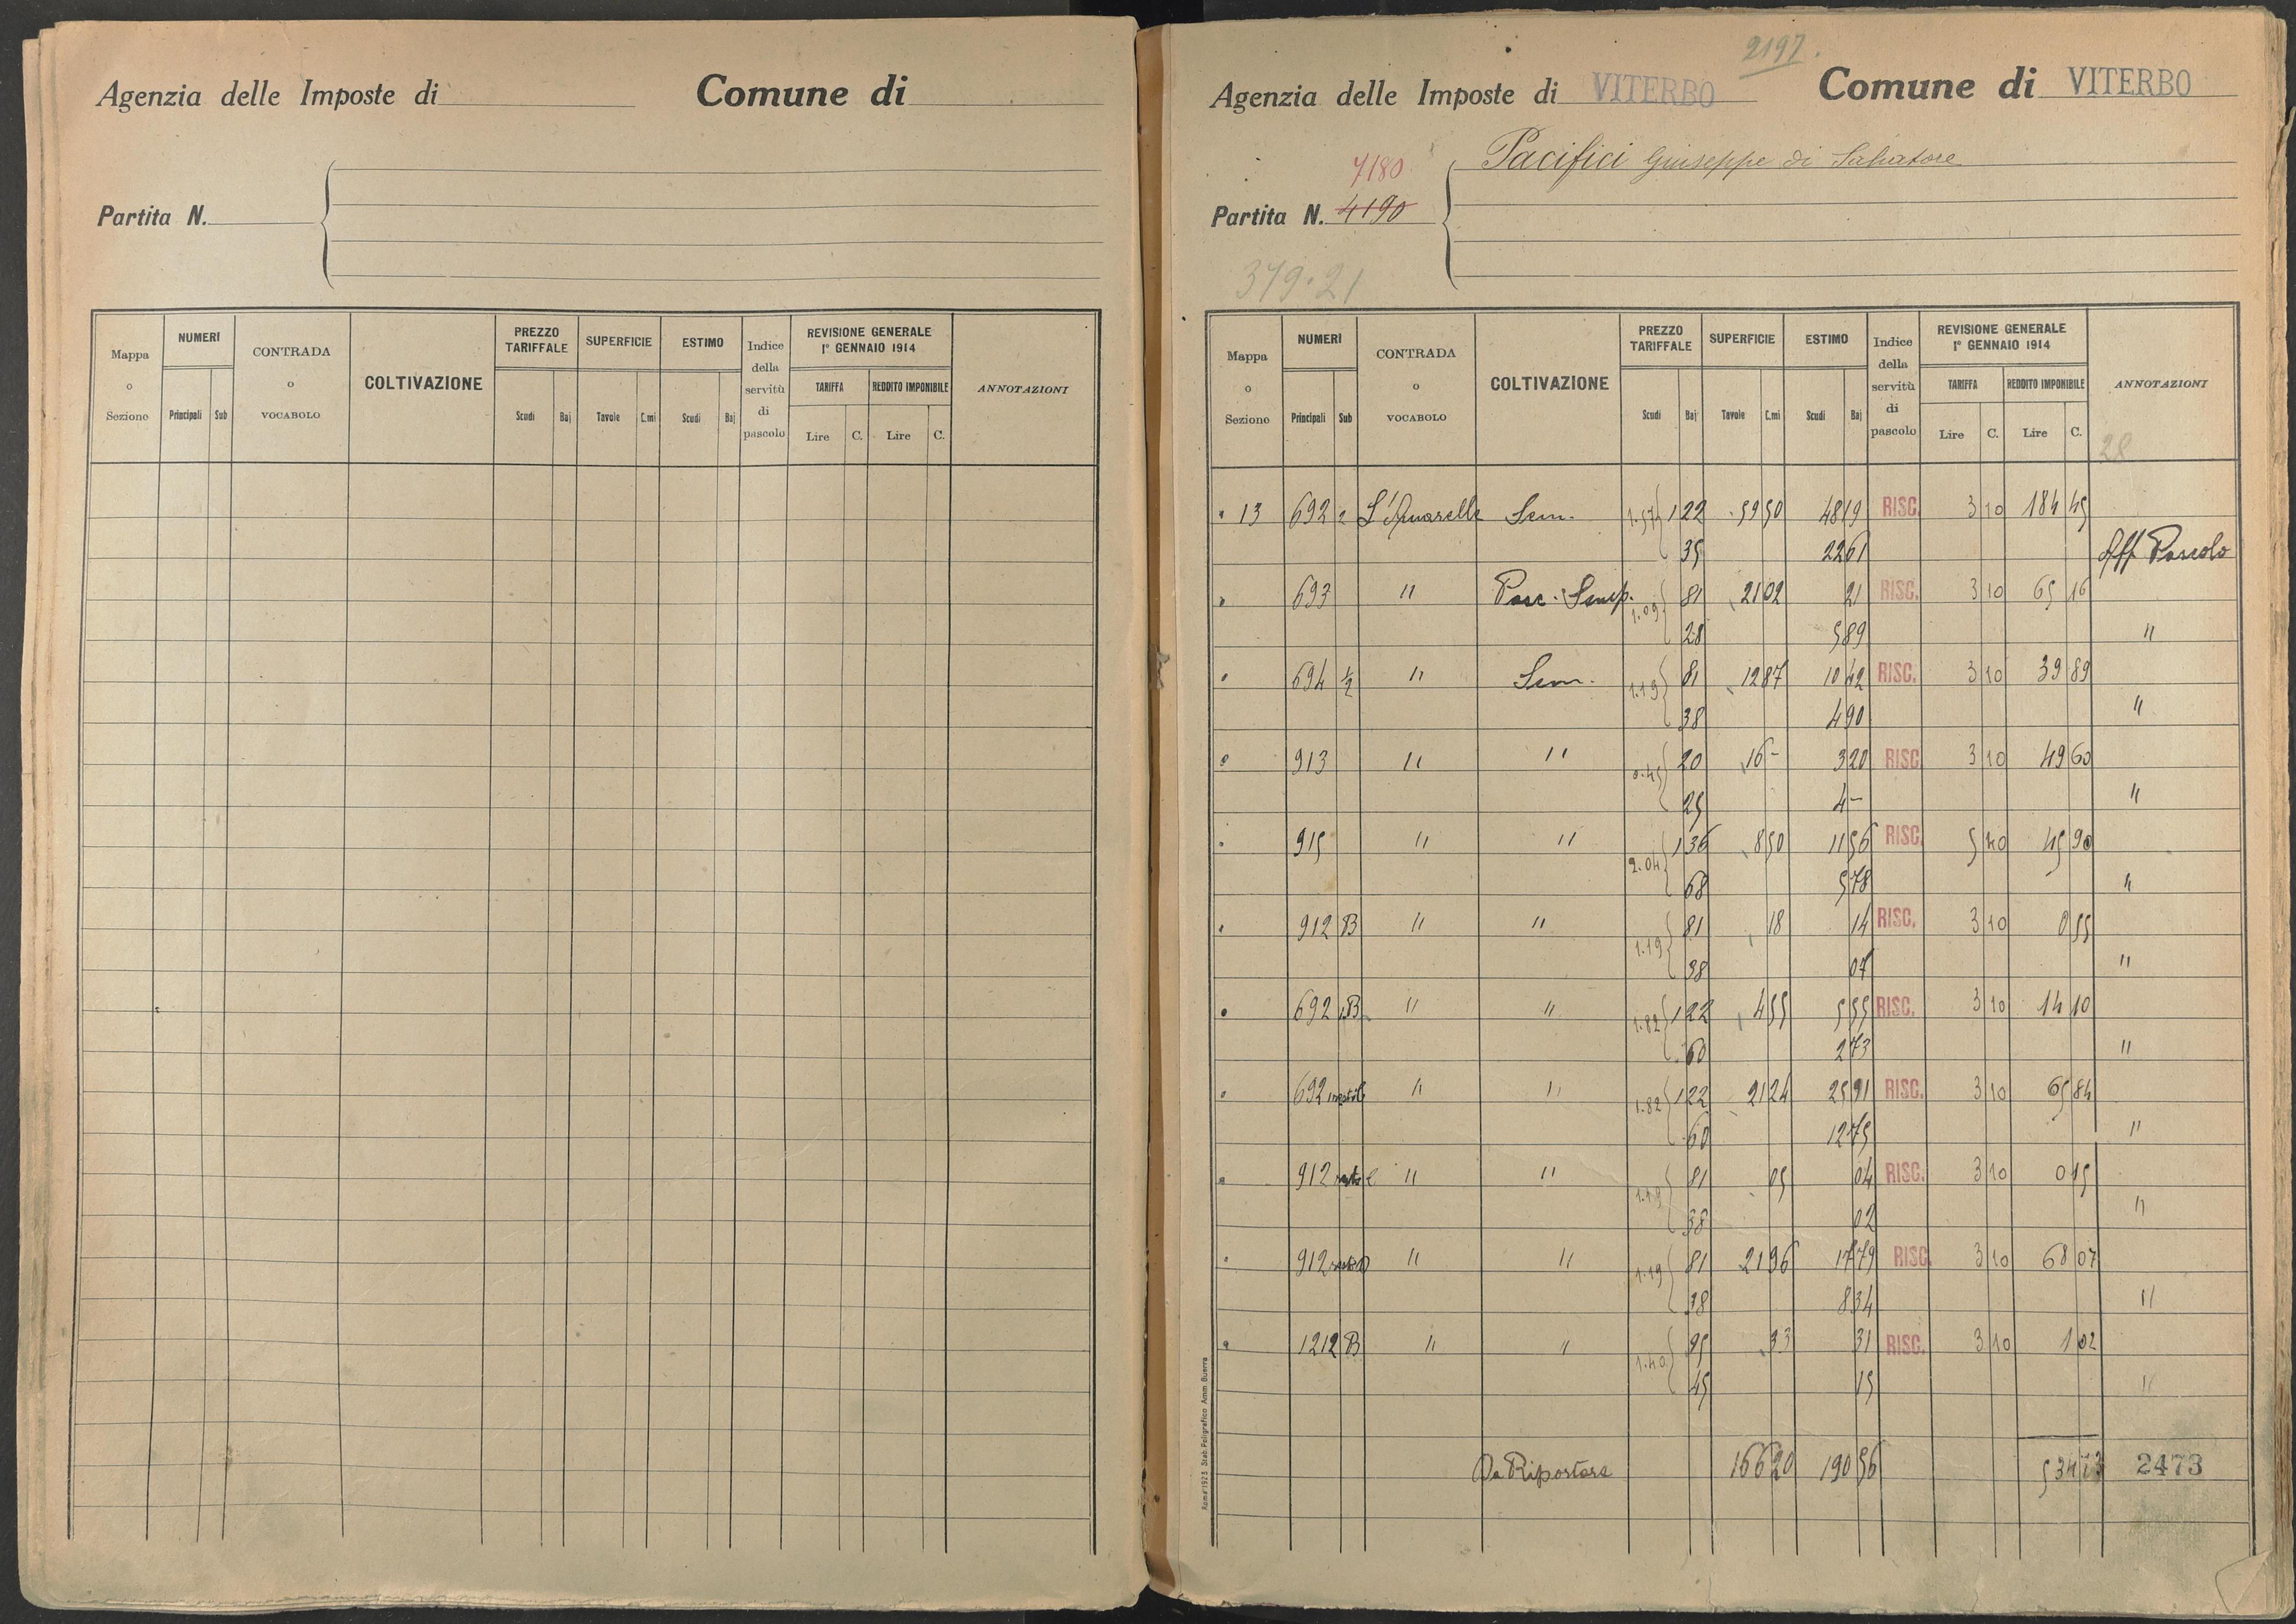 Agenzia delle Imposte di Comune di
Partita N.
Mappa o Sezione NUMERI Principali Sub CONTRADA o VOCABOLO COLTIVAZIONE PREZZO TARIFFALE Scudi Baj SUPERFICIE Tavole C.mi ESTIMO Scudi Baj Indice della servitù di pascolo REVISIONE GENERALE 1° GENNAIO 1914 TARIFFA Lire C. REDDITO IMPONIBILE Lire C. ANNOTAZIONI
2197.
Agenzia delle Imposte di VITERBO Comune di VITERBO
Pacifici Giuseppe di Salvatore
7180
Partita N. 4190
379.21
Mappa o Sezione NUMERI Principali Sub CONTRADA o VOCABOLO COLTIVAZIONE PREZZO TARIFFALE Scudi Baj SUPERFICIE Tavole C.mi ESTIMO Scudi Baj Indice della servitù di pascolo REVISIONE GENERALE 1° GENNAIO 1914 TARIFFA Lire C. REDDITO IMPONIBILE Lire C. ANNOTAZIONI
28
13 692 2 Sem. 1.57 1 22 59 50 48 19 RISC. 3 10 184 45
35 22 61 Aff Pascolo
693 " Pasc. Semp. 1.09 81 21 02 21 RISC. 3 10 65 16
28 5 89 "
694 1/2 " Sem. 1.19 81 12 87 10 42 RISC. 3 10 39 89
38 4 90 "
913 " " 0.45 20 16 - 3 20 RISC 3 10 49 60
25 4 - "
915 " " 2.04 1 36 8 50 11 56 RISC. 5 40 45 90
68 5 78 "
912 B " " 1.19 81 18 14 RISC. 3 10 0 55
38 07 "
692 B " " 1.82 1 22 4 55 5 55 RISC. 3 10 14 10
60 2 73 "
692 " " 1.82 1 22 21 24 25 91 RISC. 3 10 65 84
60 12 75 "
912 " " 1.19 81 05 04 RISC. 3 10 0 15
38 02 "
912 " " 1.19 81 21 96 17 79 RISC. 3 10 68 07
38 8 34 "
1212 B " " 1.40 95 33 31 RISC. 3 10 1 02
45 15 "
Da Riportare 166 20 190 56 534 73 2473